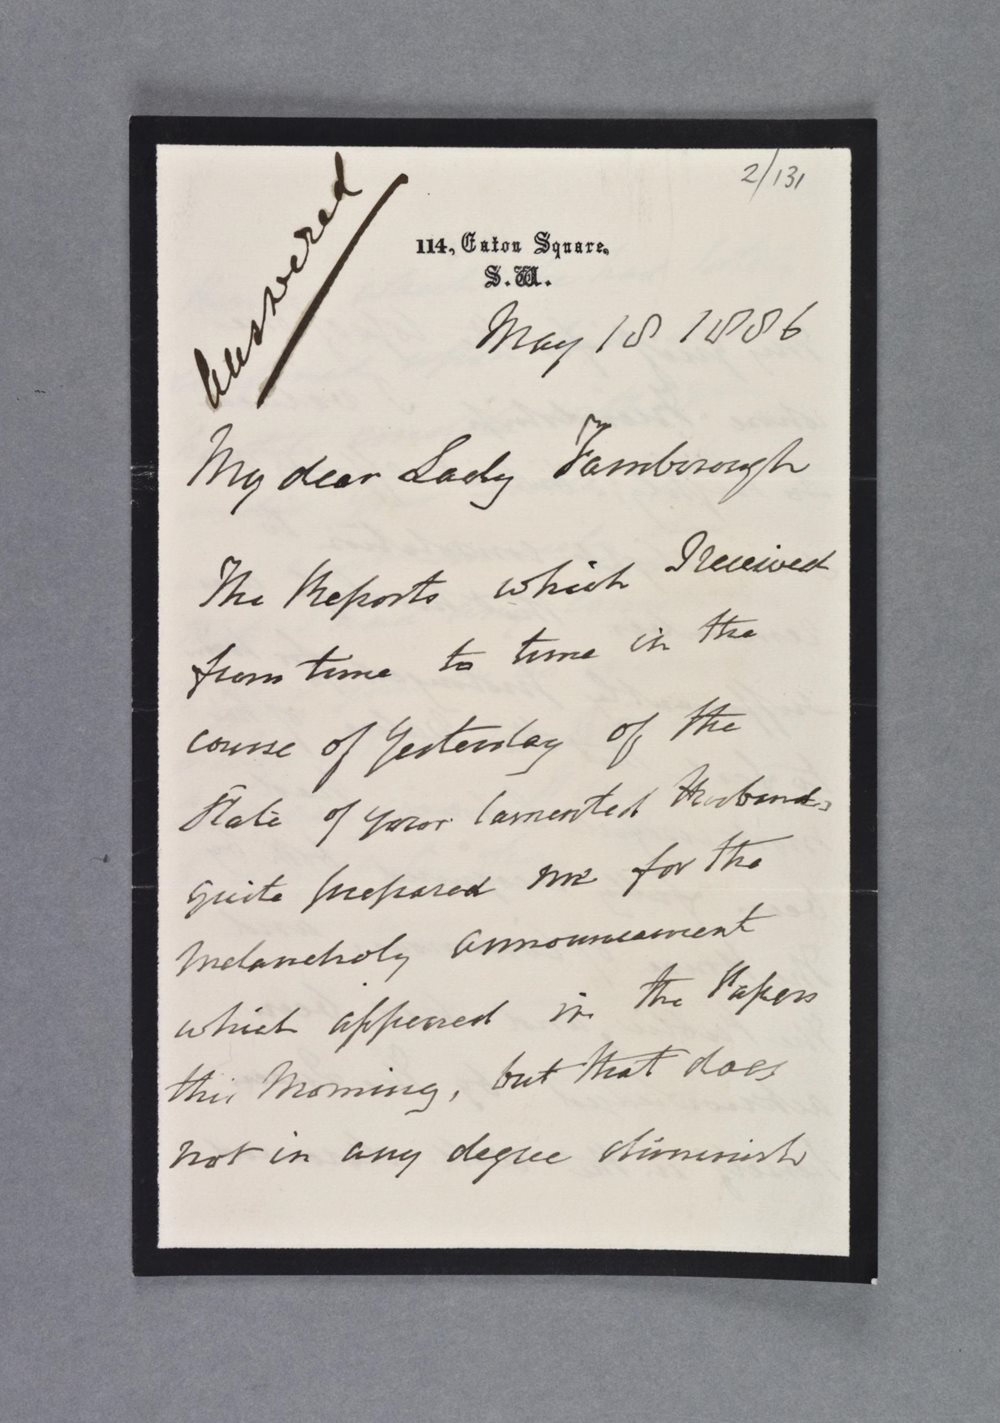 2/131
Answered
114, Eaton Square,
S.W.
May 18 1886
My dear Lady Farnborough
The Reports which I received
from time to time in the
course of Yesterday of the
State of your lamented Husband,
quite prepared me for the
melancholy announcement
which appeared in the Papers
this Morning, but that does
not in any degree diminish